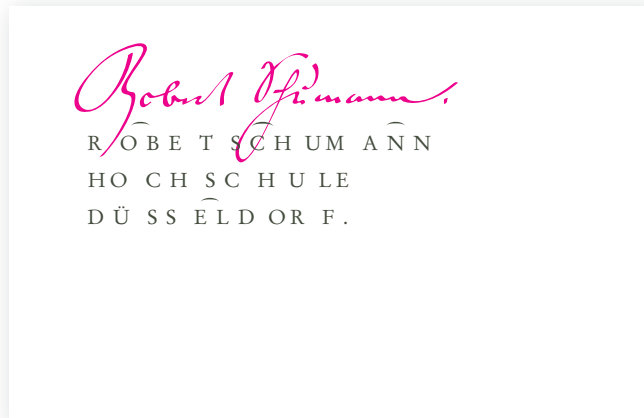 Robert Schumann.
R OBE T SCHUM ANN
HO CH SC H ULE
DÜ SS ELD OR F.